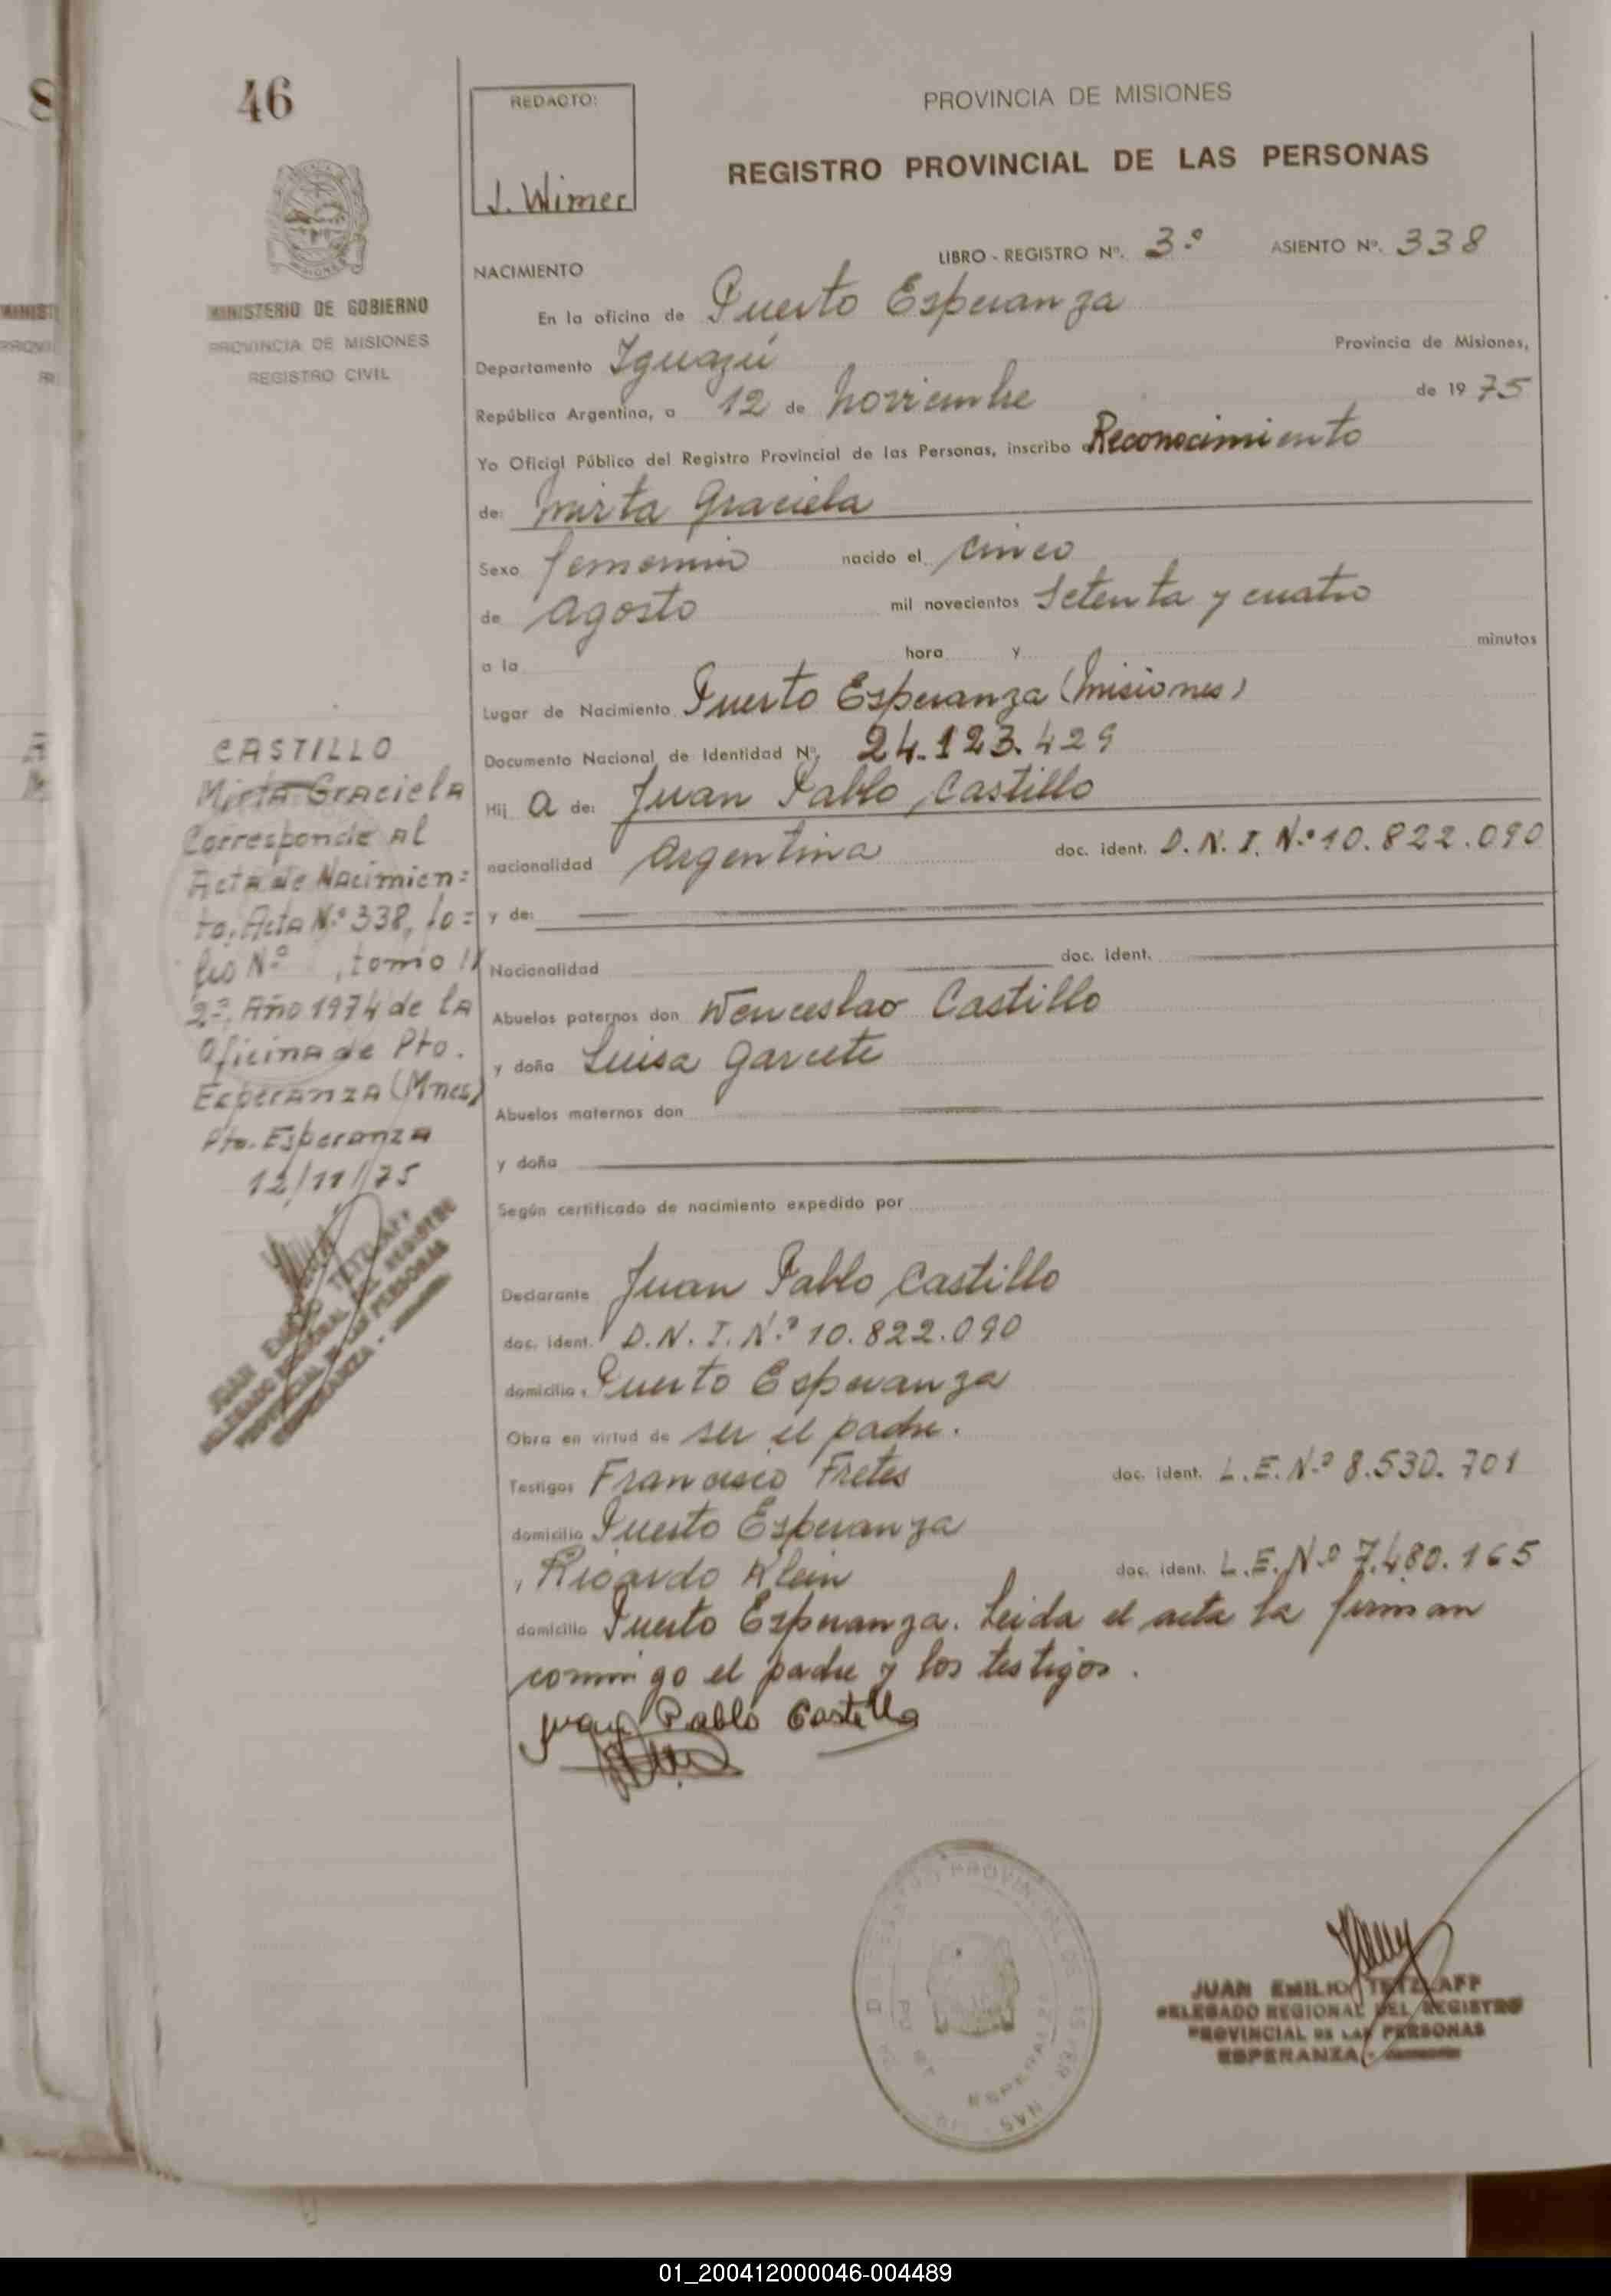 46
MINISTERIO DE GOBIERNO
PROVINCIA DE MISIONES
REGISTRO CIVIL
REDACTO:
J. Wimer
PROVINCIA DE MISIONES
REGISTRO PROVINCIAL DE LAS PERSONAS
LIBRO - REGISTRO Nº. 3º ASIENTO Nº. 338
NACIMIENTO
En la oficina de Puerto Esperanza
Departamento Iguazú Provincia de Misiones,
República Argentina, a 12 de Noviembre de 19 75
Yo Oficial Público del Registro Provincial de las Personas, inscribo Reconocimiento
de: Mirta Graciela
Sexo femenin nacido el cinco
de Agosto mil novecientos Setenta y cuatro
a la hora y minutos
Lugar de Nacimiento Puerto Esperanza (Misiones)
Documento Nacional de Identidad Nº. 24.123.429
Hij A de: Juan Pablo Castillo
nacionalidad Argentina doc. ident. D.N.I. Nº 10.822.090
y de:
Nacionalidad doc. ident.
Abuelos paternos don Wenceslao Castillo
y doña Luisa Garcete
Abuelos maternos don
y doña
Según certificado de nacimiento expedido por
Declarante Juan Pablo Castillo
doc. ident. D.N.I. Nº 10.822.090
domicilio Puerto Esperanza
Obra en virtud de ser el padre.
Testigos Francisco Fretes doc. ident. L.E. Nº 8.530.701
domicilio Puerto Esperanza
, Ricardo Klein doc. ident. L.E. Nº 7.480.165
domicilio Puerto Esperanza. Leida el acta la firman
conmigo el padre y los testigos.
Juan Pablo Castillo
CASTILLO
Mirta Graciela
Corresponde Al
Acta de Nacimien=
to, Acta Nº 338, fo=
lio Nº , tomo II
2º, Año 1974 de la
Oficina de Pto.
Esperanza (Mnes)
Pto. Esperanza
12/11/75
JUAN EMILIO TETZLAFF
DELEGADO REGIONAL DEL REGISTRO
PROVINCIAL DE LAS PERSONAS
ESPERANZA -
JUAN EMILIO TETZLAFF
DELEGADO REGIONAL DEL REGISTRO
PROVINCIAL DE LAS PERSONAS
ESPERANZA -
01_200412000046-004489